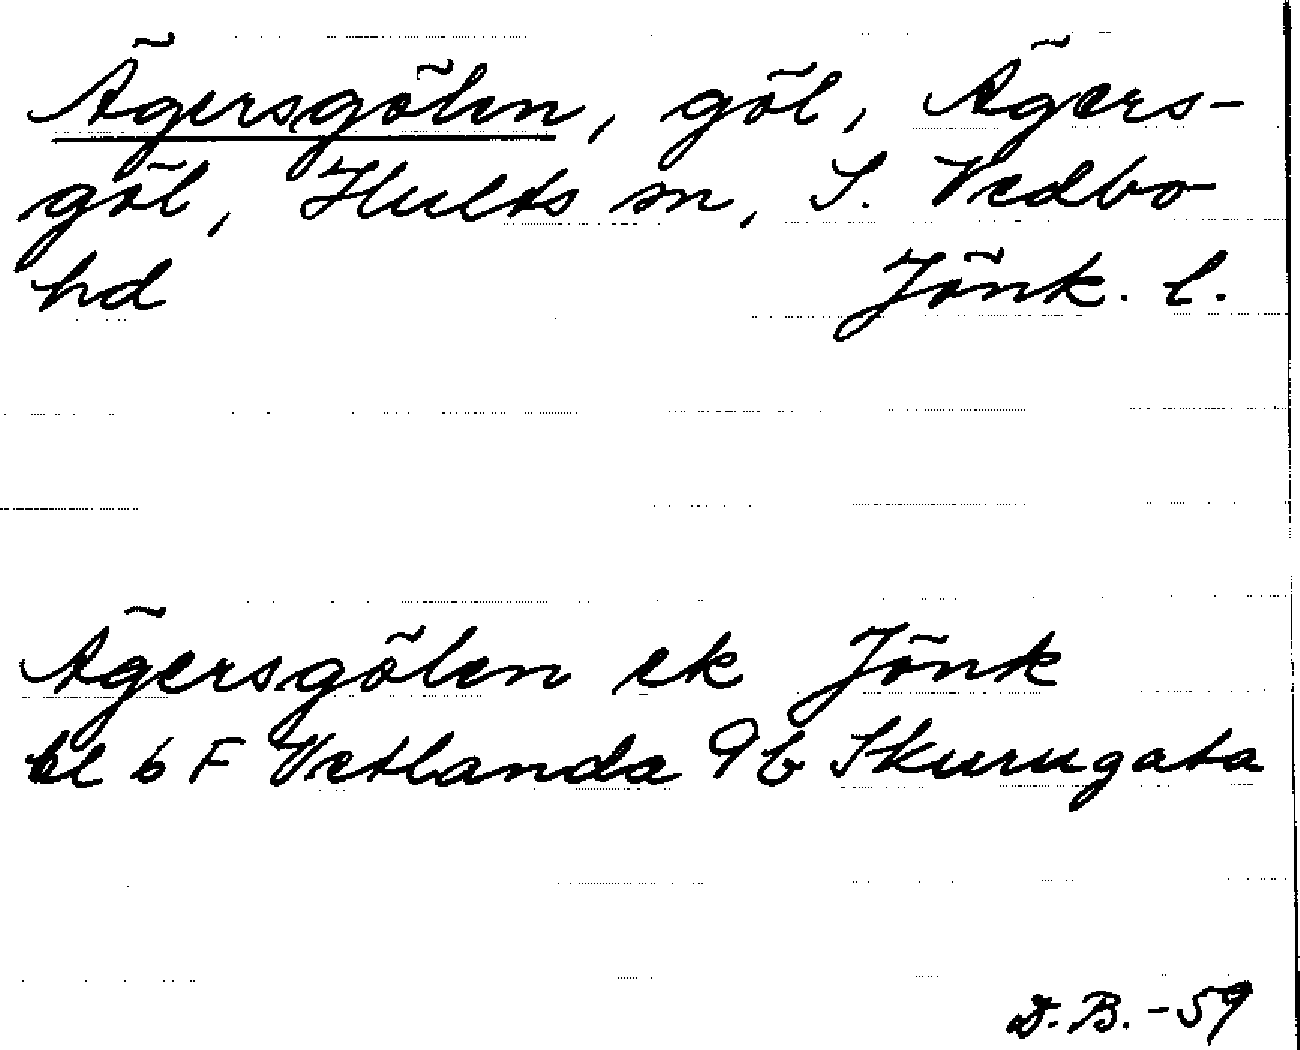 Ägersgölen, göl, Ägers-
göl, Hults sn, S. Vedbo
hd Jönk. l.
Ägersgölen ek Jönk
bl 6 F Vetlanda 9b Skurugata
D.B. -59